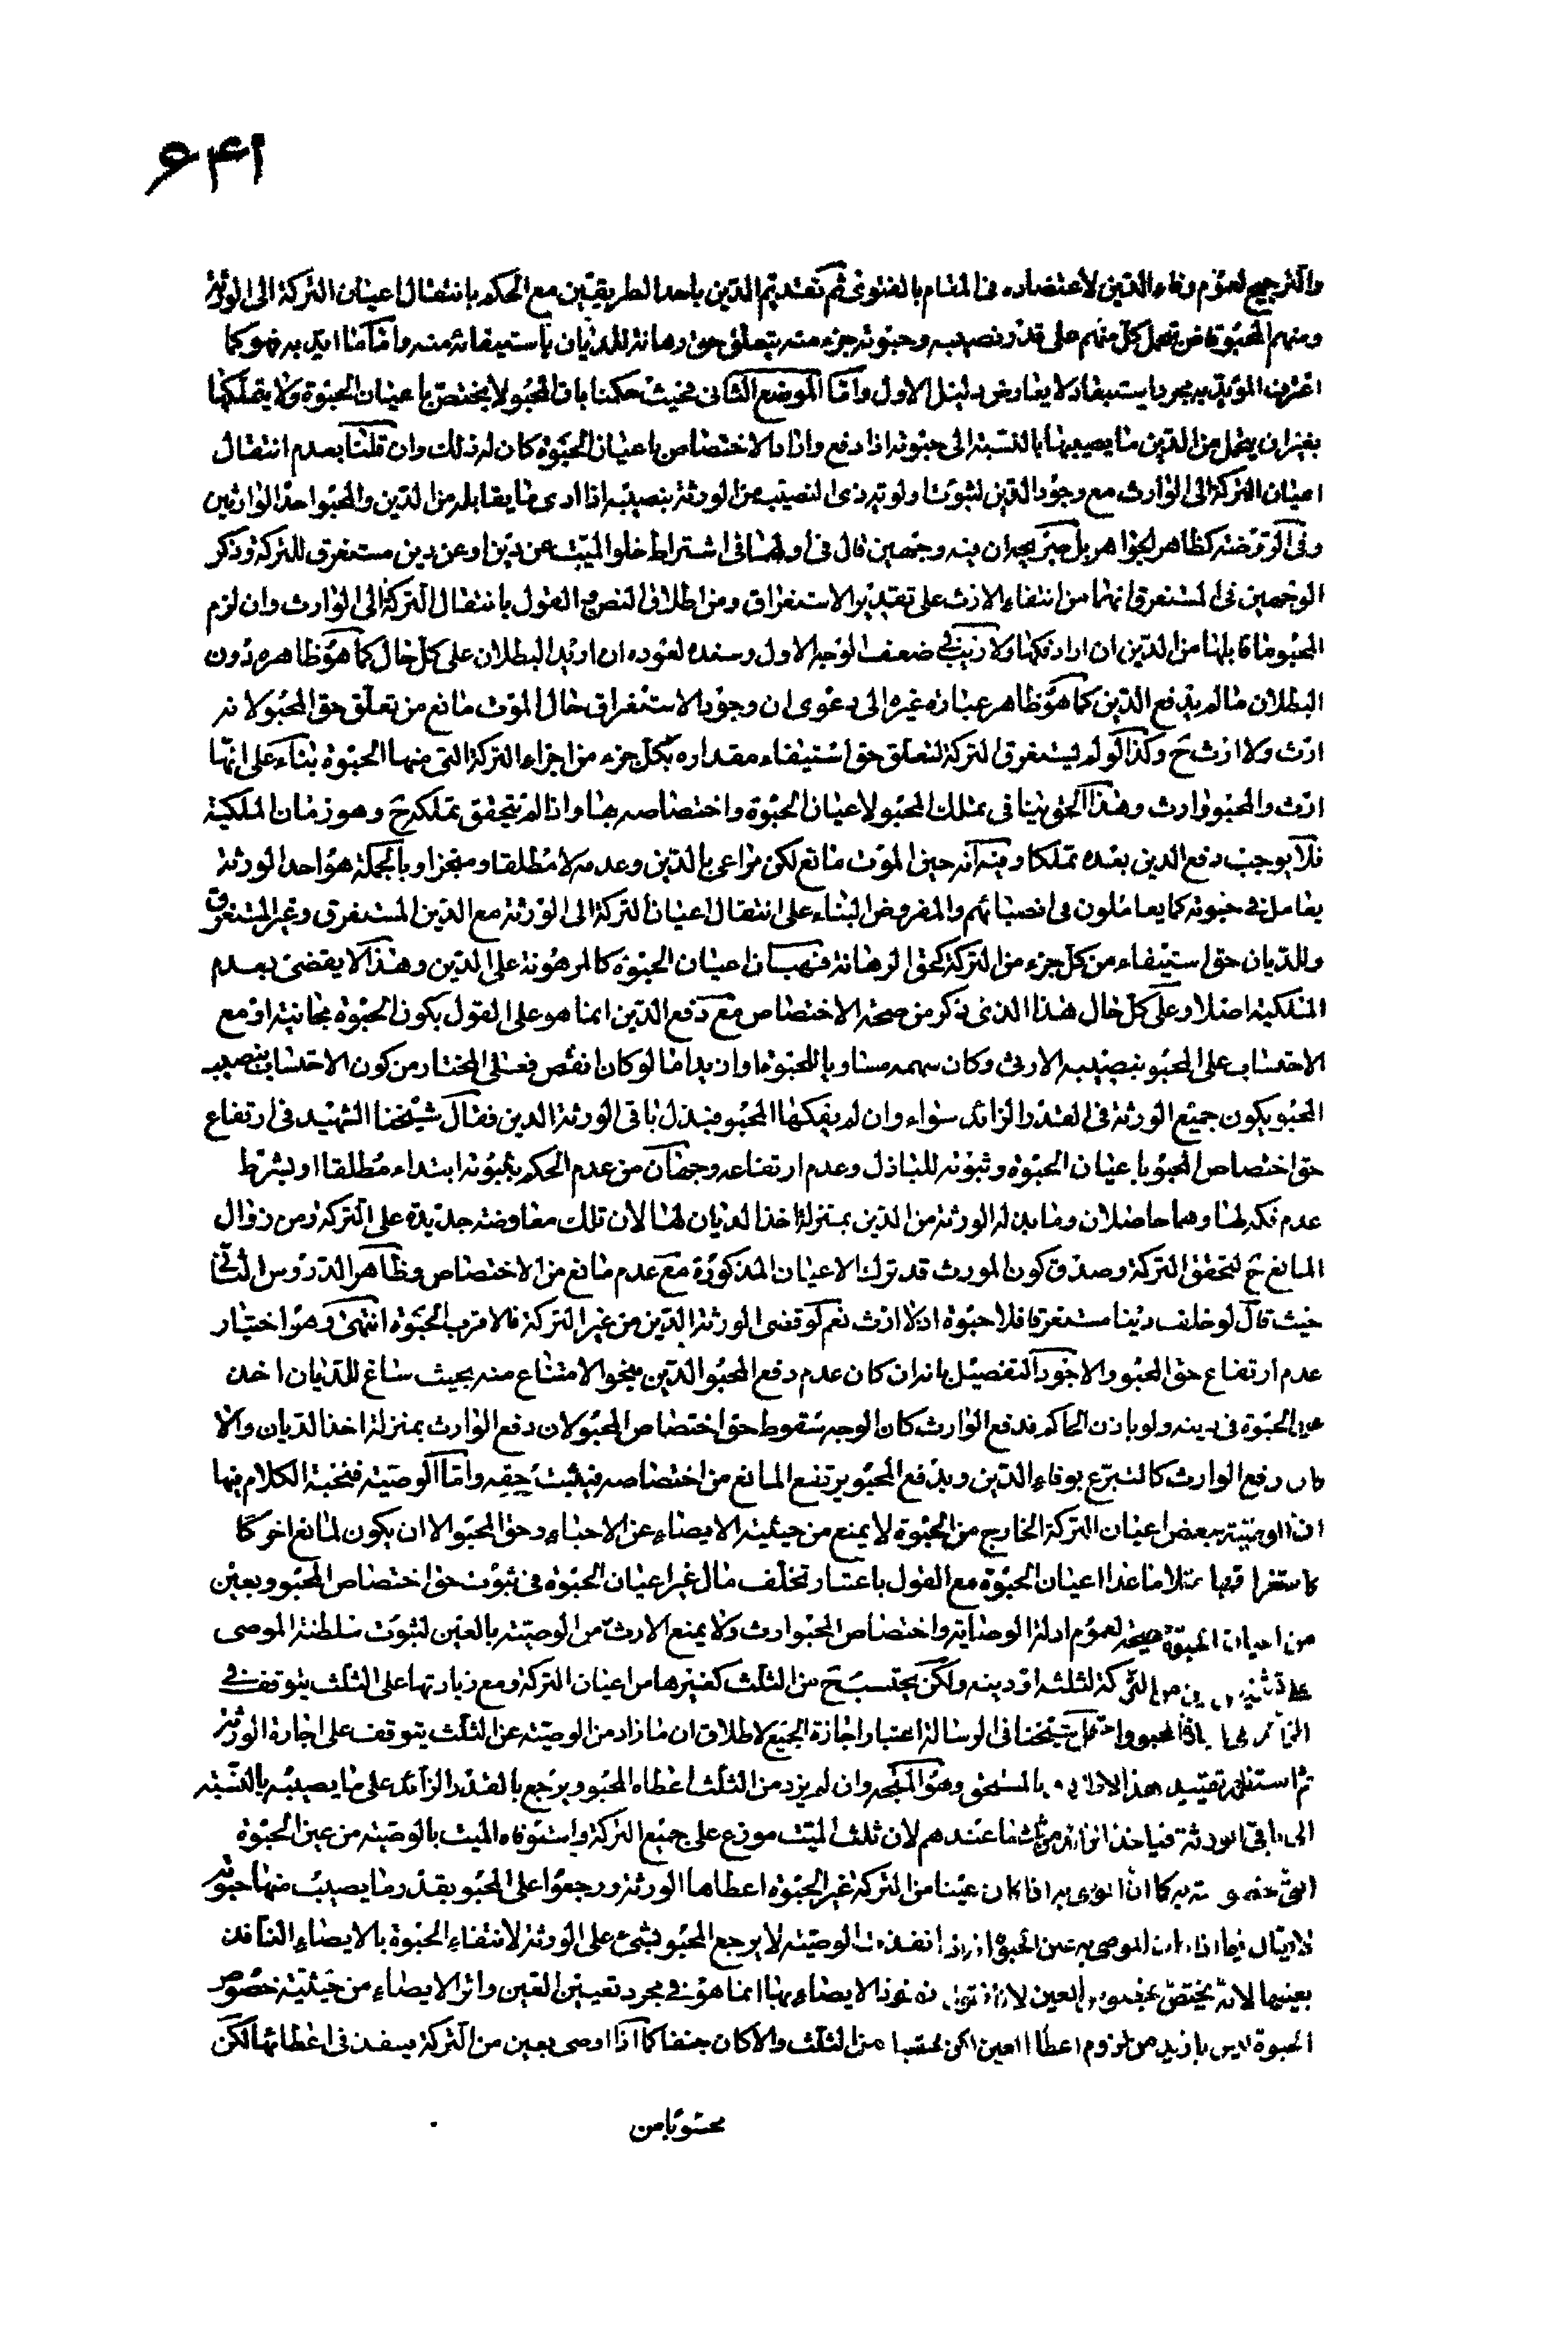 ۶۴۱
والترجيح لعموم وفاء الدين لاعتضاده فى المقام بالفتوى ثم تقديم الدين باحد الطريقين مع الحكم بانتقال اعيان التركة الى الورثة
ومنهم المحبو فان تحمل كل منهم على قدر نصيبه وحبوته جزء منه يتعلق حق رهانة للديان باستيفائه منه واما ما ايد به فهو كما
اعترف المؤيد به مجرد استبعاد لا يعارض دليل الاول واما الموضع الثانى فحيث حكمنا بان المحبو لا يختص باعيان الحبوة ولا يتملكها
بغير ان يتحمل من الدين ما يصيبها بالنسبة الى حبوته اذا دفع واراد الاختصاص باعيان الحبوة كان له ذلك وان قلنا بعدم انتقال
اعيان التركة الى الوارث مع وجود الدين لثبوت اولوية ذى النصيب من الورثة بنصيبه اذا ادى ما يقابله من الدين والمحبو احد الوارثين
وفى الروضة كظاهر الجواهر بل خير يجدان فيه وجهين قال فى اولهما فى اشتراط خلو الميت عن دين او عن دين مستغرق للتركة وذكر
الوجهين فى المستغرق انهما من انتفاء الارث على تقدير الاستغراق ومن اطلاق النص مع القول بانتقال التركة الى الوارث وان لزم
المحبو ما قابلها من الدين ان اراد فكها ولا ريب فى ضعف الوجه الاول وسنده لعوده ان اريد البطلان على كل حال كما هو ظاهره دون
البطلان ما لم يدفع الدين كما هو ظاهر عبارة غيره الى دعوى ان وجود الاستغراق حال الموت مانع من تعلق حق المحبو لانه
ارث ولا ارث ح وكذا لو لم يستغرق التركة لتعلق حق استيفاء مقداره بكل جزء من اجزاء التركة التى منها الحبوة بناء على انها
ارث والمحبو وارث وهذا الحق ينافى تملك المحبو لاعيان الحبوة واختصاصه بها واذا لم يتحقق تملكه ح وهو زمان الملكية
فلا يوجب دفع الدين بعده تملكا وفيه انه حين الموت مانع لكن مراعى بالدين وعدمه لا مطلقا ومنجزا وبالجملة هو احد الورثة
يعامل فى حبوته كما يعاملون فى انصبائهم والمفروض البناء على انتقال اعيان التركة الى الورثة مع الدين المستغرق وغير المستغرق
وللديان حق استيفاء من كل جزء من التركة كحق الرهانة فنهب ان اعيان الحبوة كالمرهونة على الدين وهذا لا يقضى بعدم
الملكية اصلا وعلى كل حال هذا الذى ذكر من صحة الاختصاص مع دفع الدين انما هو على القول بكون الحبوة مجانية او مع
الاحتساب على المحبو بنصيبه الارث وكان سهمه مساويا للحبوة او ازيد اما لو كان انقص فعلى المختار من كون الاحتساب بنصيبه
المحبو يكون جميع الورثة فى القدر الزائد سواء وان لم يفكها المحبو فبذل باقى الورثة الدين فقال شيخنا الشهيد فى ارتفاع
حق اختصاص المحبو باعيان الحبوة وثبوته للباذل وعدم ارتفاعه وجهان من عدم الحكم بثبوته ابتداء مطلقا او بشرط
عدم فكه لها وهما حاصلان وما بذله الورثة من الدين بمنزلة اخذ الديان لها لان تلك معاوضة جديدة على التركة ومن زوال
المانع ح لتحقق التركة وصدق كون المورث قد ترك الاعيان المذكورة مع عدم مانع من الاختصاص وظاهر الدروس الثانى
حيث قال لو خلف دينا مستغرقا فلا حبوة اذ لا ارث نعم لو قضى الورثة الدين من غير التركة فالاقرب الحبوة انتهى وهو اختيار
عدم ارتفاع حق المحبو والاجود التفصيل بانه ان كان عدم دفع المحبو الدين بنحو الامتناع منه بحيث ساغ للديان اخذ
عين الحبوة فى دينه ولو باذن الحاكم فدفع الوارث كان الوجه سقوط حق اختصاص المحبو لان دفع الوارث بمنزلة اخذ الديان والا
كان دفع الوارث كالتبرع بوفاء الدين وبدفع المحبو يرتفع المانع من اختصاصه فيثبت حقه واما الوصية فنخبة الكلام فيها
ان الوصية ببعض اعيان التركة الخارج من الحبوة لا يمنع من حيثية الايصاء عن الاحباء وحق المحبو الا ان يكون لمانع اخر كا
كاستغراقها مثلا ما عدا اعيان الحبوة مع القول باعتبار تخلف مال غير اعيان الحبوة فى ثبوت حق اختصاص المحبو وبعين
من اعيان الحبوة صحيحة لعموم ادلة الوصاية واختصاص المحبو ارث ولا يمنع الارث من الوصية بالعين لثبوت سلطنة الموصى
على التركة لثلثه او دينه ولكن يحتسب ح من الثلث كغيرها من اعيان التركة ومع زيادتها على الثلث يتوقف فى
الزائد على اذن المحبو واحتمل شيخنا فى الرسالة اعتبار اجازة الجميع لاطلاق ان ما زاد من الوصية عن الثلث يتوقف على اجازة الورثة
ثم استظهر تقييد هذا الاطلاق بالمستحق وهو المتجه وان لم يزد من الثلث اعطاه المحبو ويرجع بالقدر الزائد على ما يصيبه بالنسبة
الى باقى الورثة فياخذ الزائد من ثلثها عندهم لان ثلث الميت موزع على جميع التركة واستوفاه الميت بالوصية من عين الحبوة
كما ان الموصى به اذا كان عينا من التركة غير الحبوة اعطاها الورثة ورجعوا على المحبو بقدر ما يصيب منها حبوته
لا يقال فيما اذا كان الموصى به عين الحبوة انه اذا نفذت الوصية لا يرجع المحبو بشئ على الورثة لانتفاء الحبوة بالايصاء النافذ
بعينها لانه يختص العين لانا نقول ان نفوذ الايصاء بها انما هو فى مجرد تعيين العين واثر الايصاء من حيثية خصوص
الحبوة ليس بازيد من لزوم اعطاء العين لكن من الثلث والا كان جنفا كما اذا اوصى بعين من التركة ينفذ فى اعطائها لكن
محسوبا من